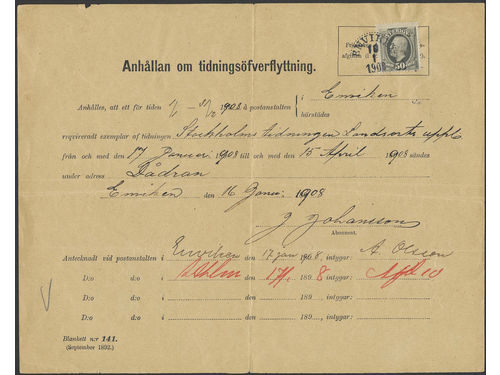 ENVIKEN
SVERIGE
50
1908
Anhållan om tidningsöfverflyttning.
Anhålles, att ett för tiden 1/1 - 31/12 1908 å postanstalten i Enviken
härstädes
reqvireradt exemplar af tidningen Stockholms tidningen Landsorts uppl
från och med den 17 Januari 1908 till och med den 15 April 1908 sändes
under adress Dådran
Enviken den 16 Januari 1908
J Johansson
Abonnent.
Antecknadt vid postanstalten i Enviken den 17 jan 1908, intygar: A. Olsson
D:o d:o i Sthlm den 17/1 1898, intygar:
D:o d:o i den 189 , intygar:
D:o d:o i den 189 , intygar:
Blankett n:r 141.
(September 1892.)